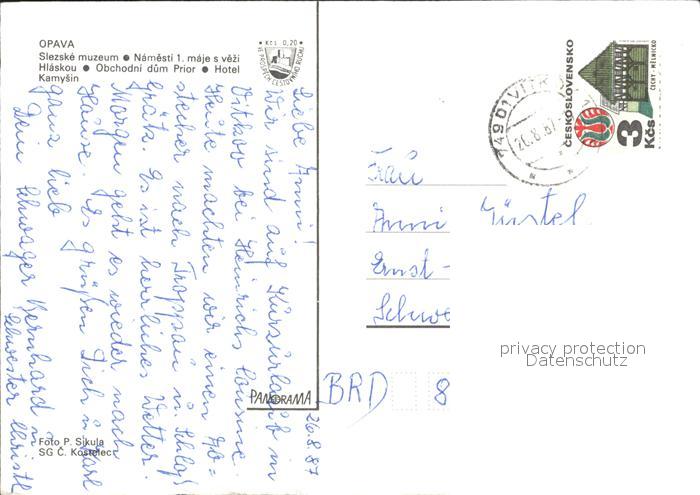 OPAVA
Slezské muzeum ● Náměstí 1. máje s věží
Hláskou ● Obchodní dům Prior ● Hotel
Kamyšin
Kčs 0,20
VE PROSPĚCH CESTOVNÍHO RUCHU
Liebe Anni!
Wir sind auf Kurzurlaub in
Vitkov bei Heinrichs Cousine.
Heute machten wir einen Ab=
stecher nach Troppau u. Schloß
Grätz. Es ist herrliches Wetter.
Morgen geht es wieder nach
Hause. Es grüßen Dich u. Karl
ganz lieb
Dein Schwager Bernhard u.
Schwester Christl
26.8.87
Foto P. Sikula
SG Č. Kostelec
PANORAMA
749 01 VÍTK
26.8.87
ČESKOSLOVENSKO
3 Kčs
ČECHY - MĚLNICKO
Frau
Anni Gürtel
Ernst-
Schwe
BRD 8
privacy protection
Datenschutz